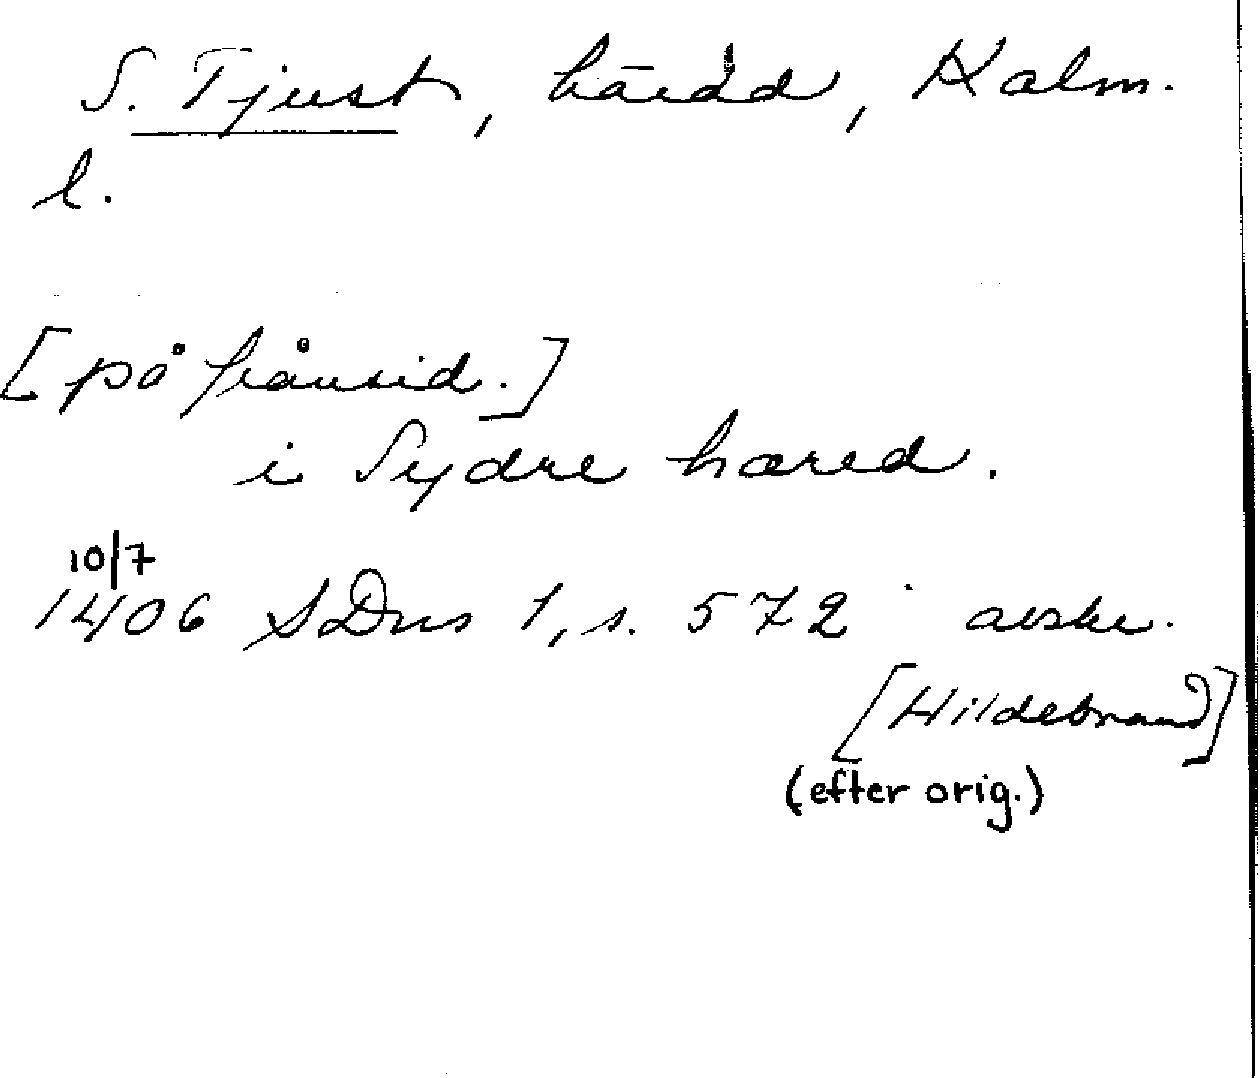 S. Tjust, härad, Kalm.
l.
[på frånsid.]
i Sydre hæred.
10/7
1406 SDns 1, s. 572 avskr.
[Hildebrand]
(efter orig.)